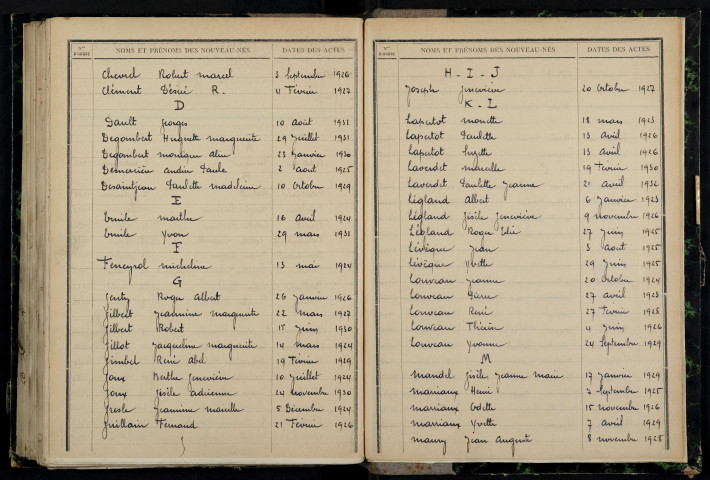 Nos D'ORDRE NOMS ET PRÉNOMS DES NOUVEAU-NÉS DATES DES ACTES
Chevrel Robert marcel 3 Septembre 1926
Clément Désiré R. 11 Février 1927
D
Dault georges 10 Août 1931
Degombert Huguette marguerite 29 Juillet 1931
Degombert monique 23 Janvier 1930
2 août 1925
Desaintjean Paulette madeleine 10 Octobre 1929
E
Emile marthe 16 avril 1924
Emile Yvon 29 mars 1931
F
Feneyrol micheline 13 mai 1924
G
Roger Albert 26 Janvier 1926
Gilbert Jeannine marguerite 22 mars 1927
Gilbert Robert 15 Juin 1930
Gillot Jacqueline marguerite 14 mars 1924
Gimbel René Abel 19 Février 1929
Joux Berthe Geneviève 10 Juillet 1924
Joux Gisèle adrienne 24 novembre 1930
Gresle Jeannine marcelle 5 Décembre 1924
Guillain Fernand 21 Février 1926
Nos D'ORDRE NOMS ET PRÉNOMS DES NOUVEAU-NÉS DATES DES ACTES
H - I - J
Joseph Geneviève 20 Octobre 1927
K - L
Lapertot monette 18 mars 1923
Lapertot Paulette 13 avril 1926
Lapertot Suzette 13 avril 1926
Laverdet marcelle 19 Février 1930
Laverdet Paulette Jeanne 21 avril 1932
Légland Albert 6 Janvier 1923
Légland Gisèle Geneviève 9 novembre 1926
Légland Roger Elie 27 Juin 1925
Lévêque Jean 3 août 1925
Lévêque Yvette 29 Juin 1925
Louveau Jeanne 20 octobre 1924
Louveau Pierre 27 avril 1923
Louveau René 27 Février 1928
Louveau 4 Juin 1926
Louveau Yvonne 24 Septembre 1929
M
Mandel Gisèle Jeanne marie 17 Janvier 1929
mariaux Henri 7 Septembre 1925
mariaux Odette 15 novembre 1926
mariaux Yvette 7 avril 1929
maury Jean Auguste 8 novembre 1928